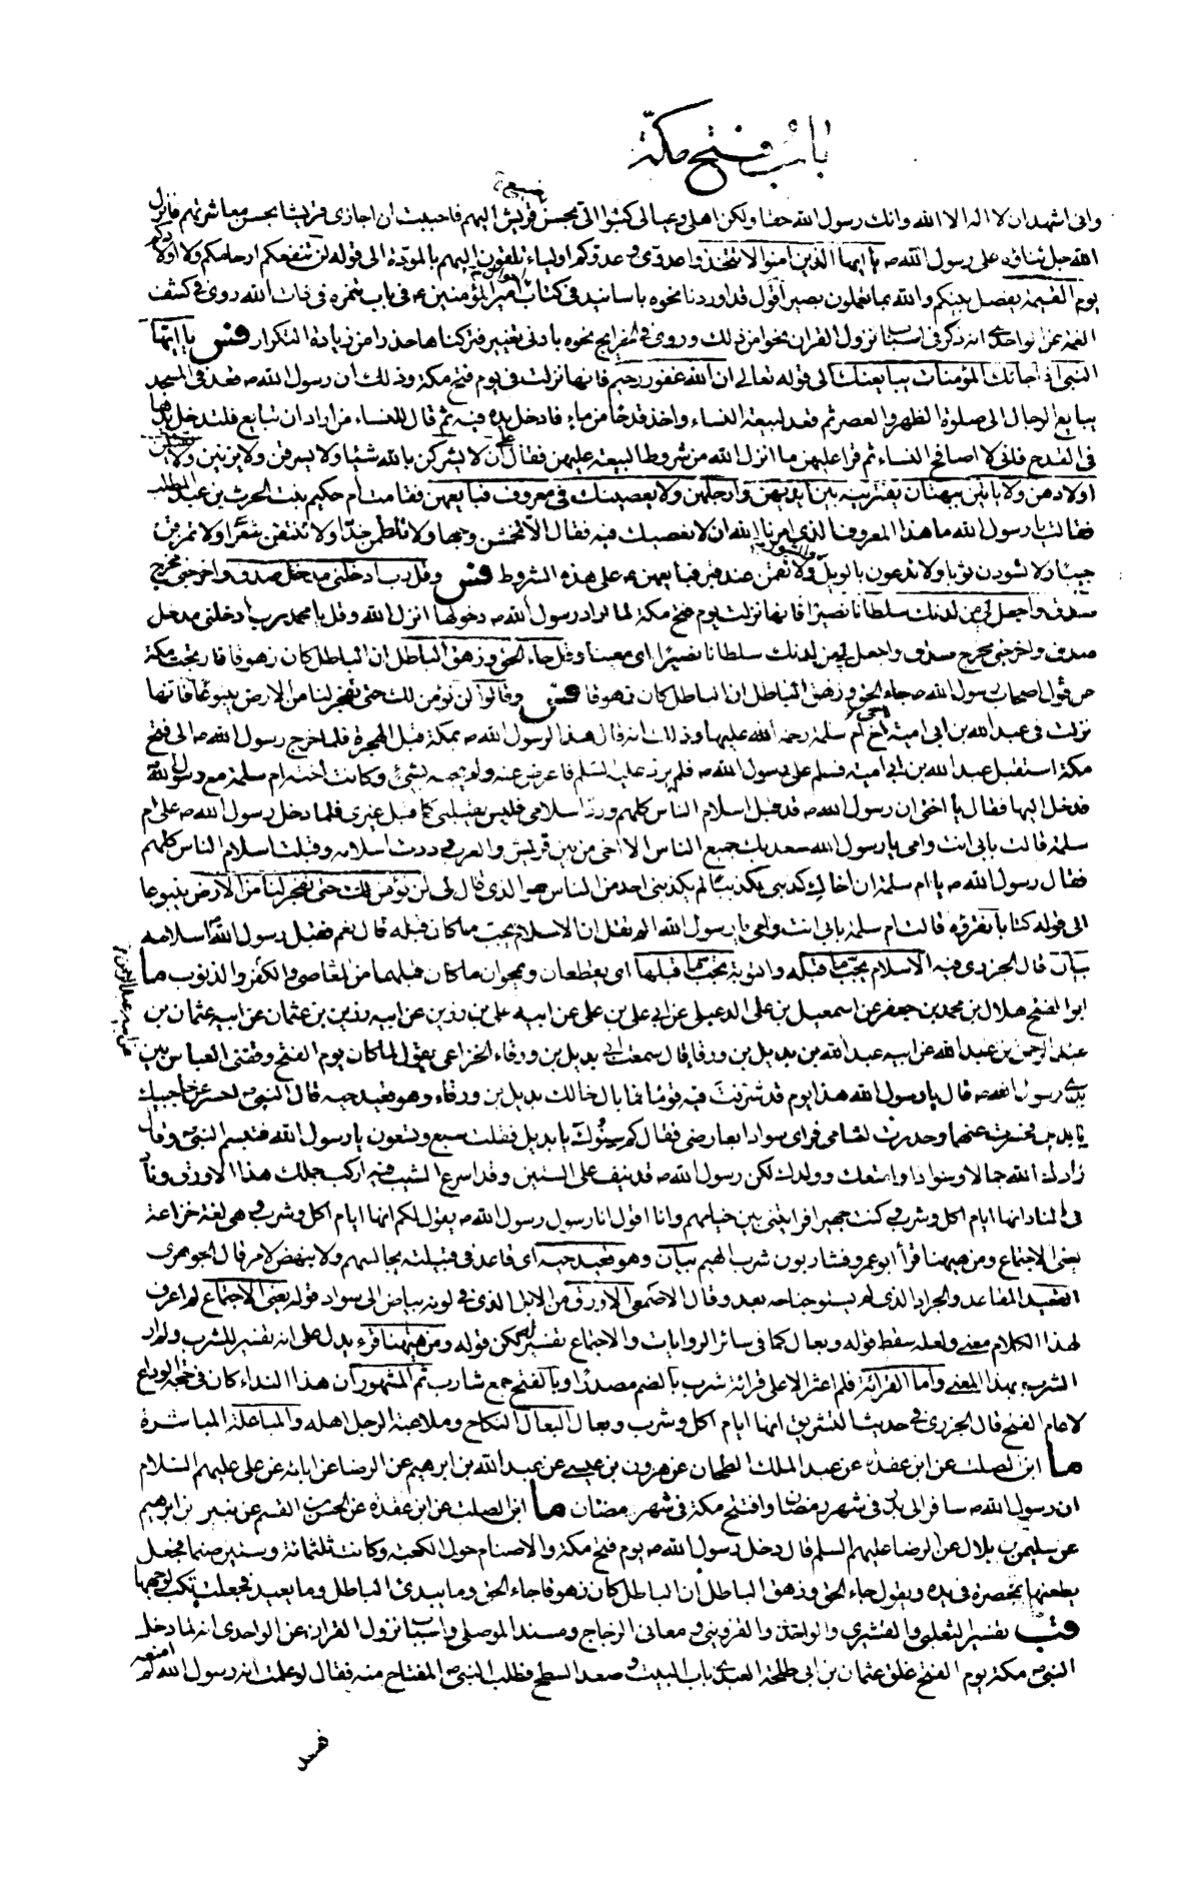 باب فتح مكة
واني اشهد ان لا اله الا الله وانك رسول الله حقا ولكن اهلي وعيالي كتبوا الي بحسن صنيع قريش اليهم فاحببت ان اجازي قريشا بحسن معاشرتهم فانزل
الله جل ثناؤه على رسول الله ص يا ايها الذين امنوا لا تتخذوا عدوي وعدوكم اولياء تلقون اليهم بالمودة الى قوله لن تنفعكم ارحامكم ولا اولادكم
يوم القيمة يفصل بينكم والله بما تعملون بصير اقول قد اوردنا نحوه باسانيد في كتاب احوال امير المؤمنين ع في باب تنمره في ذات الله روى في كشف
الغمة عن الواحدي انه ذكر في اسباب نزول القران نحوا من ذلك وروى في الخرايج نحوه بادنى تغيير فتركناها حذرا من زيادة التكرار فس يا ايها
النبي اذا جاءك المؤمنات يبايعنك الى قوله تعالى ان الله غفور رحيم فانها نزلت في يوم فتح مكة وذلك ان رسول الله ص قعد في المسجد
يبايع الرجال الى صلوة الظهر والعصر ثم قعد لبيعة النساء واخذ قدحا من ماء فادخل يده فيه ثم قال للنساء من اراد ان تبايع فلتدخل يدها
في القدح فاني لا اصافح النساء ثم قرا عليهن ما انزل الله من شروط البيعة عليهن فقال على ان لا يشركن بالله شيئا ولا يسرقن ولا يزنين ولا يقتلن
اولادهن ولا ياتين ببهتان يفترينه بين ايديهن وارجلهن ولا يعصينك في معروف فبايعهن فقامت ام حكيم بنت الحرث بن عبد المطلب
فقالت يا رسول الله ما هذا المعروف الذي امرنا الله ان لا نعصيك فيه فقال الا تخمشن وجها ولا تلطمن خدا ولا تنتفن شعرا ولا تمزقن
جيبا ولا تسودن ثوبا ولا تدعون بالويل والثبور ولا تقمن عند قبر فبايعهن ص على هذه الشروط فس وقل رب ادخلني مدخل صدق واخرجني مخرج
صدق واجعل لي من لدنك سلطانا نصيرا فانها نزلت يوم فتح مكة لما اراد رسول الله ص دخولها انزل الله وقل يا محمد رب ادخلني مدخل
صدق واخرجني مخرج صدق واجعل لي من لدنك سلطانا نصيرا اي معينا وقل جاء الحق وزهق الباطل ان الباطل كان زهوقا فارتجت مكة
من قول اصحاب رسول الله ص جاء الحق وزهق الباطل ان الباطل كان زهوقا فس وقالوا لن نؤمن لك حتى تفجر لنا من الارض ينبوعا فانها
نزلت في عبد الله بن ابي امية اخي ام سلمة رحمة الله عليها وذلك انه قال هذا لرسول الله ص بمكة قبل الهجرة فلما خرج رسول الله ص الى فتح
مكة استقبل عبد الله بن ابي امية فسلم على رسول الله ص فلم يرد عليه السلم فاعرض عنه ولم يجبه بشئ وكانت اخته ام سلمة مع رسول الله ص
فدخل اليها فقال يا اختي ان رسول الله ص قد قبل اسلام الناس كلهم ورد اسلامي فليس يقبلني كما قبل غيري فلما دخل رسول الله ص على ام
سلمة قالت بابي انت وامي يا رسول الله سعد بك جميع الناس الا اخي من بين قريش والعرب رددت اسلامه وقبلت اسلام الناس كلهم
فقال رسول الله ص يا ام سلمة ان اخاك كذبني تكذيبا لم يكذبني احد من الناس هو الذي قال لي لن نؤمن لك حتى تفجر لنا من الارض ينبوعا
الى قوله كتابا نقرؤه قالت ام سلمة بابي انت وامي يا رسول الله الم تقل ان الاسلام يجب ما كان قبله قال نعم فقبل رسول الله ص اسلامه
بيان قال الجزري فيه الاسلام يجب ما قبله والتوبة تجب ما قبلها اي يقطعان ويمحوان ما كان قبلهما من المعاصي والكفر والذنوب ما
ابو الفتح هلال بن محمد بن جعفر عن اسمعيل بن علي الدعبلي عن ابي علي بن علي عن ابيه علي بن رزين عن ابيه رزين بن عثمان عن ابيه عثمان بن
عبد الرحمن بن عبد الله عن ابيه عبد الله بن بديل بن ورقا قال سمعت ابي بديل بن ورقاء الخزاعي يقول لما كان يوم الفتح وقفني العباس بين
عن ابيه عبد الرحمن
يدي رسول الله ص قال يا رسول الله هذا يوم قد شرفت فيه قوما فما بال خالك بديل بن ورقاء وهو قعيد حيه قال النبي ص احسر عن حاجبيك
يا بديل فحسرت عنهما وحدرت لثامي فراى سوادا بعارضي فقال كم سنوك يا بديل فقلت سبع وتسعون يا رسول الله فتبسم النبي ص وقال
زادك الله جمالا وسوادا وامتعك وولدك لكن رسول الله ص قد نيف على الستين وقد اسرع الشيب فيه اركب جملك هذا الاورق وناد
في الناس انها ايام اكل وشرب وكنت جهيرا فرايتني بين خيامهم وانا اقول انا رسول رسول الله ص يقول لكم انها ايام اكل وشرب وهي لغة خزاعة
يعني الاجتماع ومن هيهنا قرأ ابو عمرو فشاربون شرب الهيم بيان وهو قعيد حيه اي قاعد في قبيلته يجالسهم ولا ينهض لامر قال الجوهري
القعيد المقاعد والجراد الذي لم يستو جناحه بعد وقال الاصمعي الاورق من الابل الذي في لونه بياض الى سواد قوله يعني الاجتماع لم اعرف
لهذا الكلام معنى ولعله سقط قوله وبعال كما في سائر الروايات والاجتماع تفسير له لكن قوله ومن هيهنا قرء يدل على انه تفسير للشرب ولم ار
الشرب بهذا المعنى واما القرائة فلم اعثر الا على قرائة شرب بالضم مصدرا وبالفتح جمع شارب ثم المشهور ان هذا النداء كان في حجة الوداع
لا عام الفتح قال الجزري في حديث التشريق انها ايام اكل وشرب وبعال البعال النكاح وملاعبة الرجل اهله والمباعلة المباشرة
ما ابن الصلت عن ابن عقدة عن عبد الملك الطحان عن هرون بن عيسى عن عبد الله بن ابرهيم عن الرضا عن ابائه عن علي عليهم السلام
ان رسول الله ص سافر الى بدر في شهر رمضان وافتتح مكة في شهر رمضان ما ابن الصلت عن ابن عقدة عن الحسن بن القسم عن ثبير بن ابرهيم
عن سليمن بن بلال عن الرضا عليهم السلم قال دخل رسول الله ص يوم فتح مكة والاصنام حول الكعبة وكانت ثلثمائة وستين صنما فجعل
يطعنها بمخصرة في يده ويقول جاء الحق وزهق الباطل ان الباطل كان زهوقا جاء الحق وما يبدئ الباطل وما يعيد فجعلت تكب لوجهها
قب تفسير الثعلبي والقشيري والواحدي والقزويني ومعاني الزجاج ومسند الموصلي واسباب نزول القران عن الواحدي انه لما دخل
النبي ص مكة يوم الفتح غلق عثمان بن ابي طلحة العبدي باب البيت وصعد السطح فطلب النبي ص المفتاح منه فقال لو علمت انه رسول الله لم امنعه
فصعد